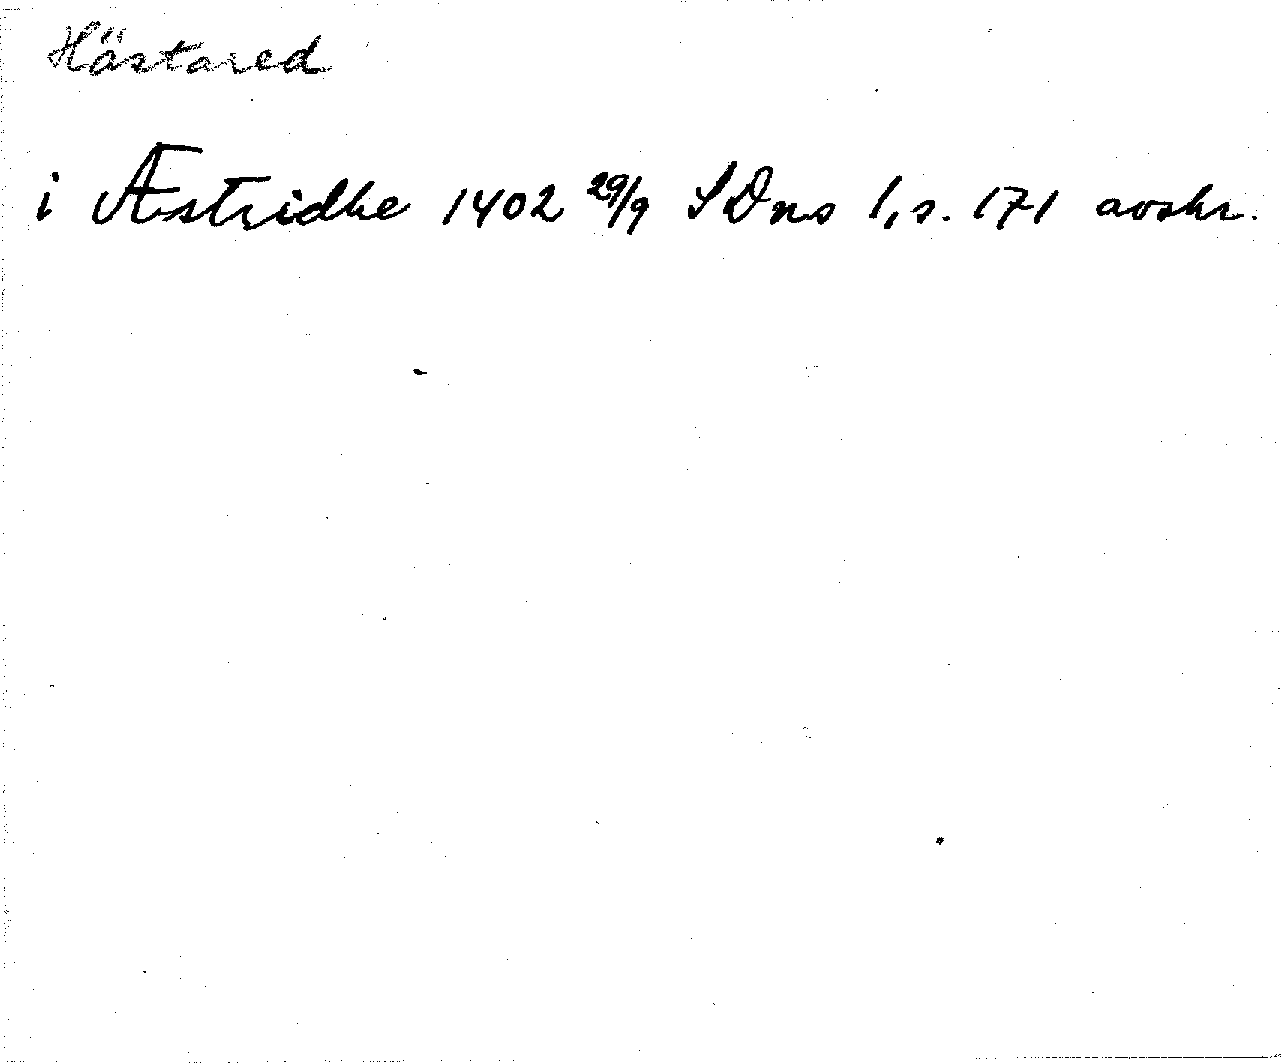 Hästared
i Æstridhe 1402 29/9 SDns 1, s. 171 avskr.